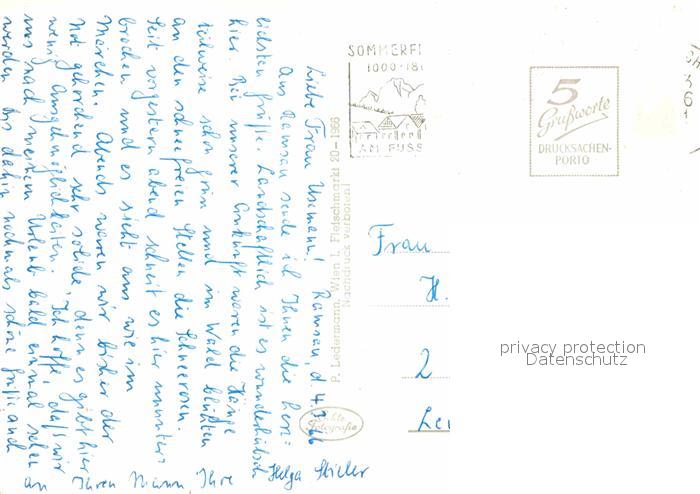 Ramsau, d. 4.3.66
Liebe Frau Usemann!
Aus Ramsau sende ich Ihnen die herz-
lichsten Grüße. Landschaftlich ist es wunderhübsch
hier. Bei unserer Ankunft waren die Hänge
teilweise schon grün und im Wald blühten
an den schneefreien Stellen die Schneerosen.
Seit vorgestern abend schneit es hier ununter-
brochen und es sieht aus wie im
Märchen. Abends waren wir bisher der
Not gehorchend sehr solide, denn es gibt hier
wenig Ausgehmöglichkeiten. Ich hoffe, daß wir
uns nach meinem Urlaub bald einmal sehen
werden. Bis dahin nochmals schöne Grüße auch
an Ihren Mann Ihre Helga Stieler
P. Ledermann, Wien I, Fleischmarkt 20 - 1966
Nachdruck verboten!
Echte
Fotografie
SOMMERFR
1000-18
AM FUSS
5
Grußworte
DRUCKSACHEN-
PORTO
Frau
H.
2
privacy protection
Datenschutz